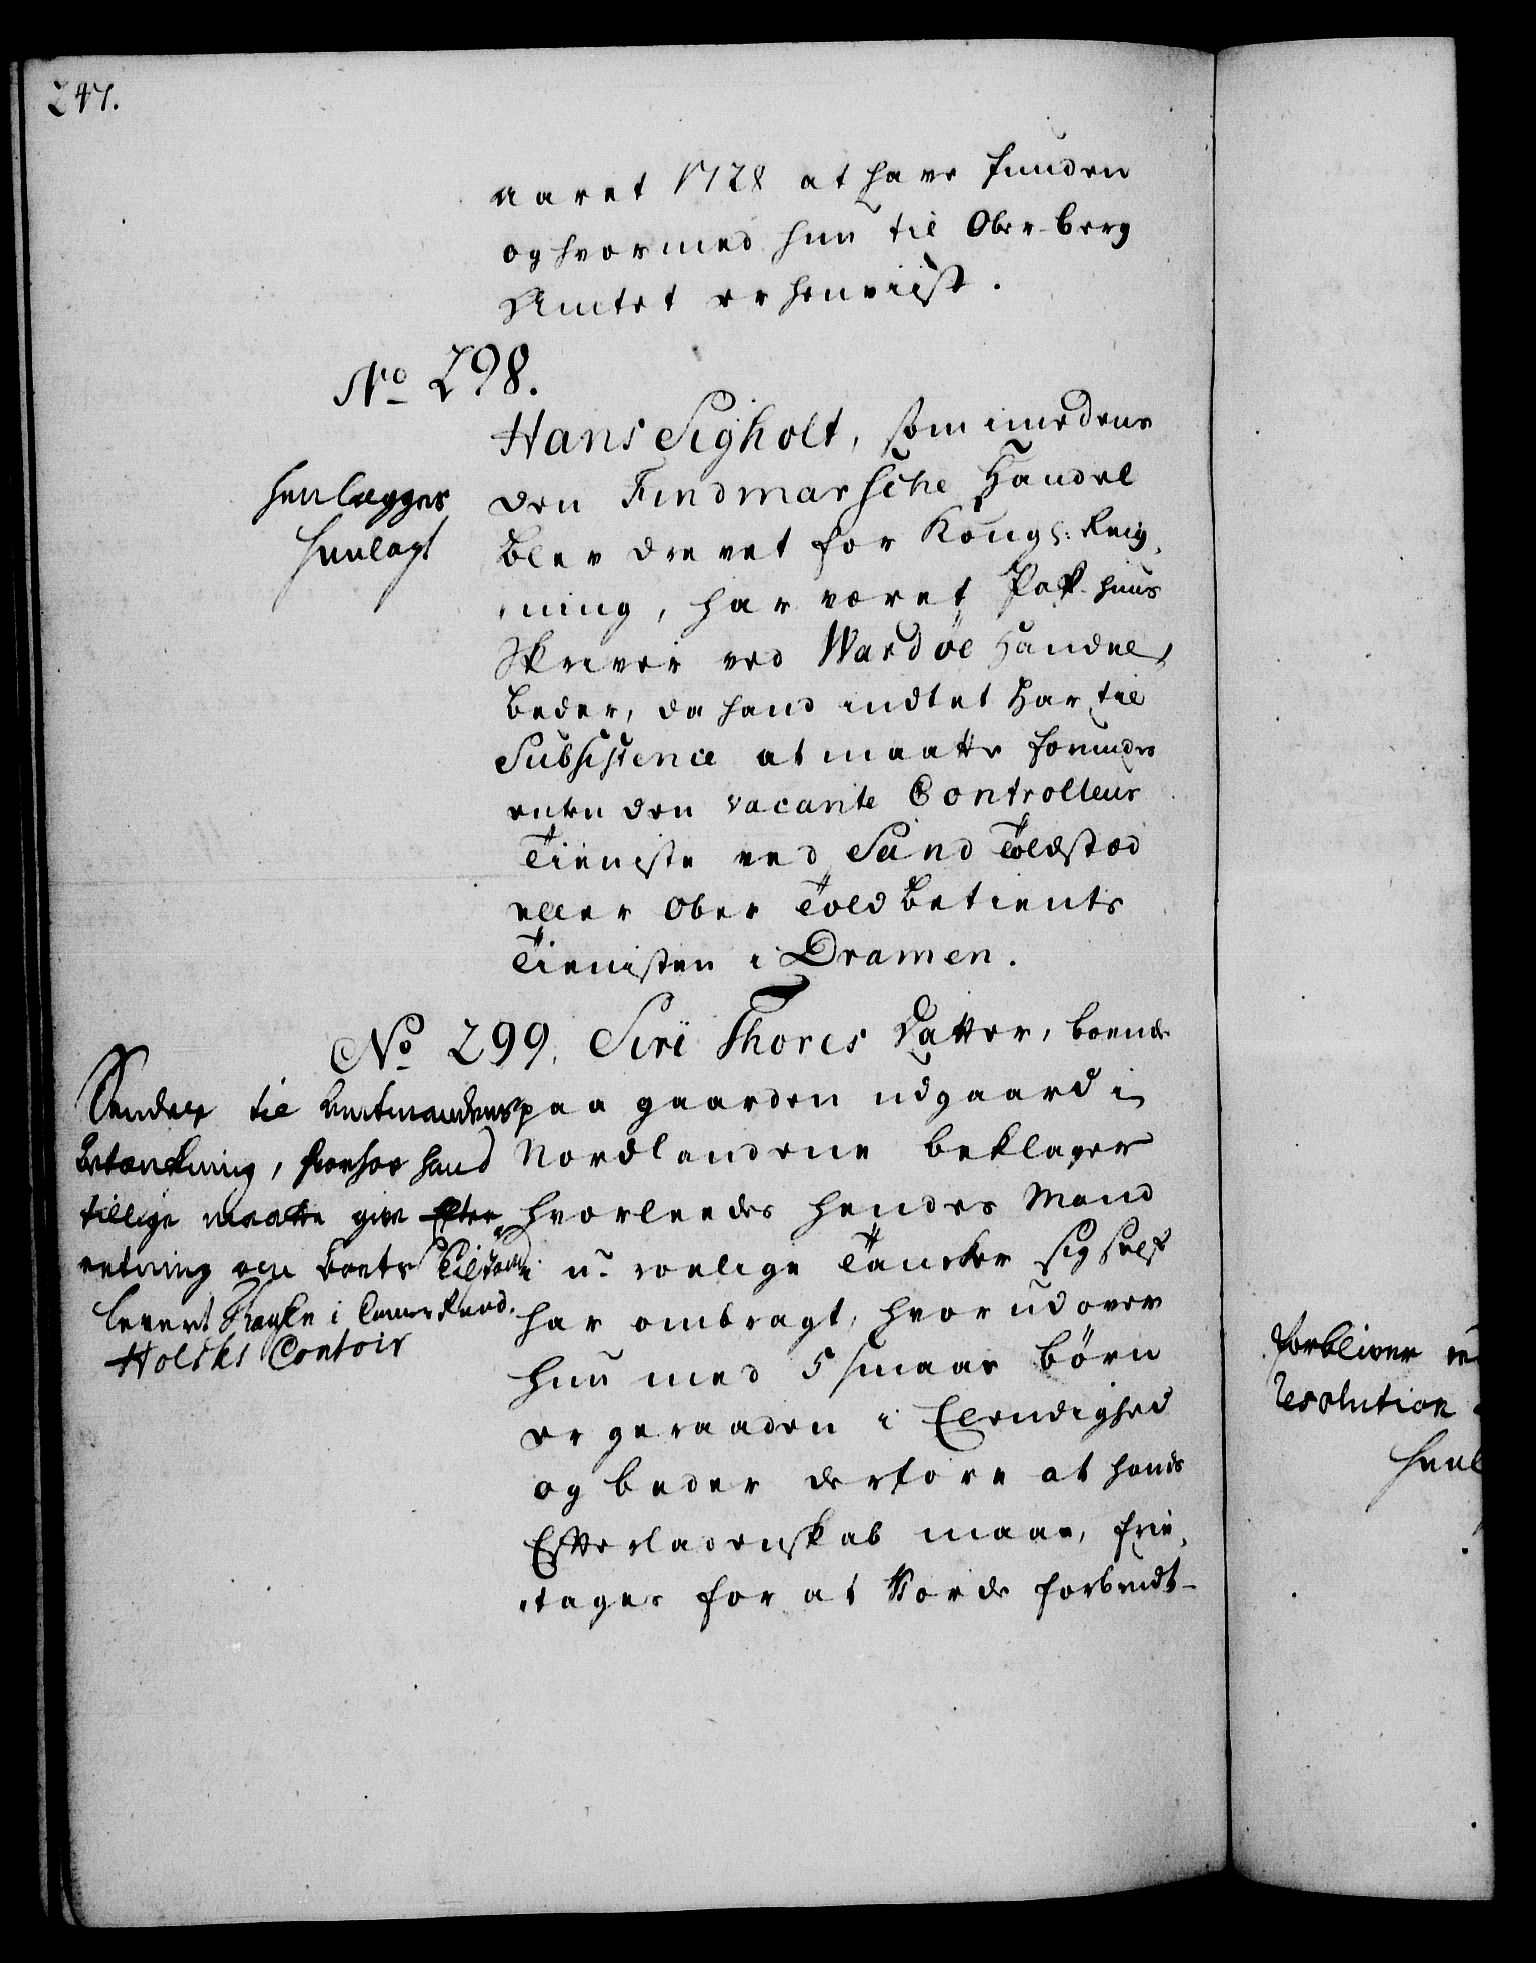 247.
aaret 1728 at have funden
og hvormed hun til Ober-berg
Amtet er henviist.
No 298.
Hans Sigholt, som imedens
den Findmarsche Handel
blev drevet for Kongl: Reig,
,ning, har været Pak-huus
Skriver ved Wardøe Handel,
beder, da hand indtet har til
Subsistence at maatte forundes
enten den vacante Controlleur
Tieniste ved Sand Toldstæd
eller Ober Toldbetients
Tienisten i Dramen.
henlægges
henlagt
No 299. Siri Thores Datter, boende
paa gaarden udgaard i
Nordlandene beklager
hvorleedes hendes Mand
i u-roelige Tancker sig self
har ombragt, hvorudover
hun med 5 smaae børn
er geraaden i Elendighed
og beder derfore at hands
Effterladenskab maae, frie,
,tages for at vorde forbrudt-
Sendes til Amtmandens
betænkning, hvorhos hand
tillige maatte give Efter
retning om boets Tilstand
levert Franke i Camer Raad
Holsks Contoir
forbliver
Resolution